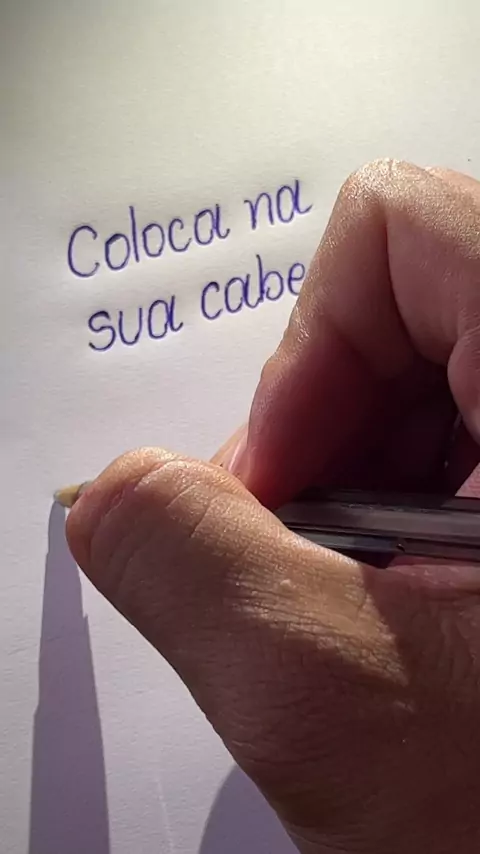 Coloca na
sua cabe